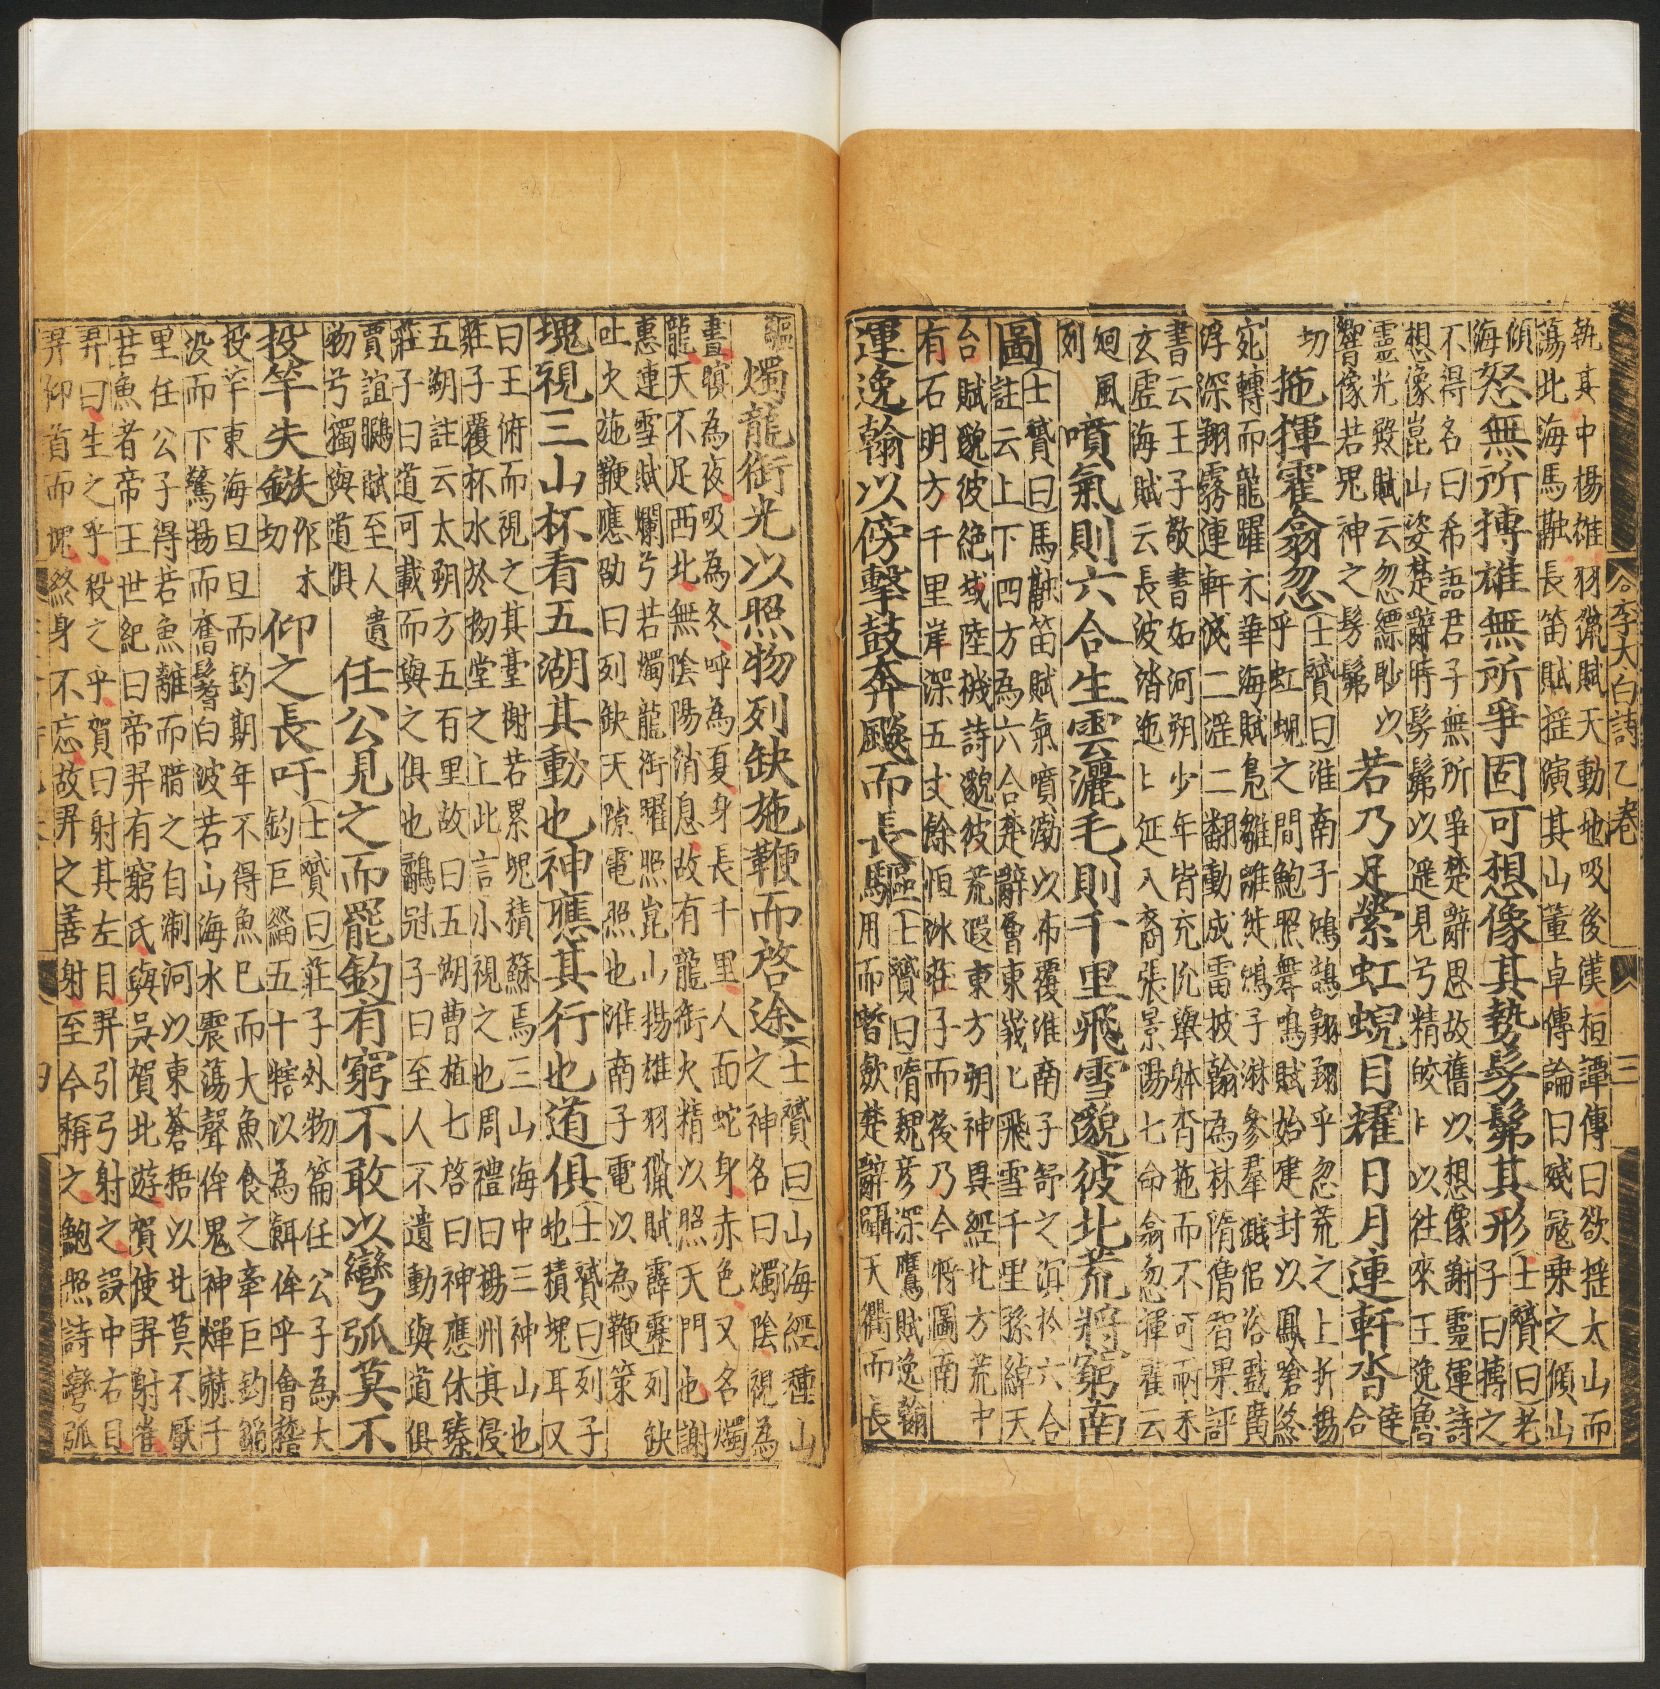 執其中揚雄羽獵賦天動地吸後漢桓譚傳曰欲搖太山而
蕩北海馬融長笛賦搖演其山董卓傳論曰殘寇乘之傾山
傾海怒無所搏雄無所爭固可想像其勢髣髴其形士贇曰老子曰搏之
不得名曰希語君子無所爭楚辭思故舊以想像謝靈運詩
想像崑山姿楚辭時髣髴以遥見兮精皎〻以往來王逸魯
靈光殿賦云忽縹眇以響像若鬼神之髣髴若乃足縈虹蜺目耀日月連軒沓達合
切拖揮霍翕忽士贇曰淮南子鴻鵠翺翔乎忽荒之上折揚乎虹蜺之間鮑照舞鳴賦始建封以鳳蹌終
宛轉而龍躍木華海賦鳧雛離褷鴻子淋滲羣濺侣浴戲廣
浮深翔霧連軒二涯二翻動成雷披翰為林隋僧智果評
書云王子敬書如河朔少年皆充悅舉躰沓拖而不可耐木
玄虛海賦云長波㳫迤〻延入裔張景陽七命翕忽揮霍云
廻風列噴氣則六合生雲灑毛則千里飛雪邈彼北荒將窮南
圖士贇曰馬融笛賦氣噴浡以布覆淮南子舒之滇於六合
註云上下四方為六合楚辭層東峩〻飛雪千里孫綽天
台賦邈彼絶域陸機詩邈彼荒遐東方朔神異經北方荒中
有石明方千里岸深五丈餘恒冰莊子而後乃今將圖南
運逸翰以傍擊鼓奔飈而長驅士贇曰隋魏彦深鷹賦逸翰用而暫歛楚辭躡天衢而長
驅燭龍銜光以照物列缺施鞭而啓途士贇曰山海經鍾山之神名曰燭陰視為
晝瞑為夜吸為冬呼為夏身長千里人面蛇身赤色又名燭
龍天不足西北無陰陽消息故有龍銜火精以照天門也謝
惠連雪賦爛兮若燭龍銜曜照崑山揚雄羽獵賦霹靂列缺
吐火施鞭應劭曰列缺天隙電照也淮南子電以為鞭策
塊視三山杯看五湖其動也神應其行也道俱士贇曰列子地積塊耳又
曰王俯而視之其臺榭若累塊積蘇焉三山海中三神山也
莊子覆杯水於坳堂之上此言小視之也周禮曰揚州其侵
五湖註云太朔方五百里故曰五湖曹植七啓曰神應休臻
莊子曰道可載而與之俱也鶡冠子曰至人不遺動與道俱
賈誼鵬賦至人遺物兮獨與道俱任公見之而罷釣有窮不敢以彎弧莫不
投竿失鏃作木切仰之長吁士贇曰莊子外物篇任公子為大釣巨緇五十犗以為餌侔乎會稽
投竿東海旦旦而釣期年不得魚巳而大魚食之牽巨釣䧟
没而下驚揚而奮鬐白波若山海水震蕩聲侔鬼神燀赫千
里任公子得若魚離而腊之自淛河以東蒼梧以北莫不厭
若魚者帝王世紀曰帝羿有窮氏與吳賀北遊賀使羿射雀
羿曰生之乎殺之乎賀曰射其左目羿引弓射之誤中右目
羿仰首而媿終身不忘故羿之善射至今稱之鮑照詩彎弧
李太白詩乙卷
三
四